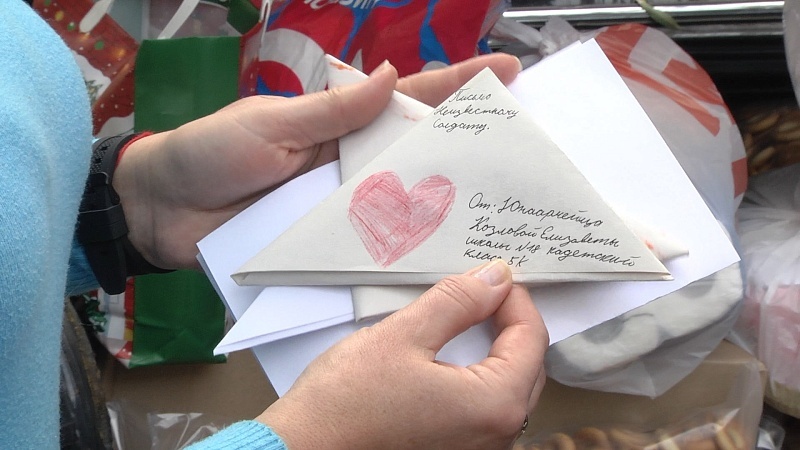 Письмо
Неизвестному
Солдату.
От: Юнармейца
Козловой Елизаветы
школы №18 кадетский
класс 5К